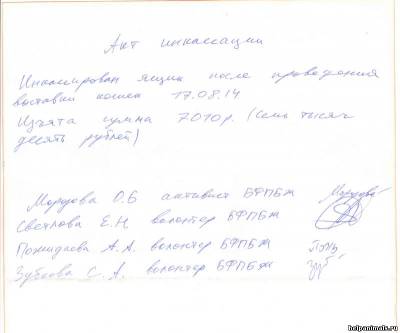 Акт инкассации
Инкассирован ящик после проведения
выставки кошек 17.08.14
Изъята сумма 7010 р. (Семь тысяч
десять рублей)
Морудова О.Б активист БФПБЖ
Светлова Е.Н волонтер БФПБЖ
Пожидаева А.А. волонтер БФПБЖ
Зубкова С.А. волонтер БФПБЖ
helpanimals.ru